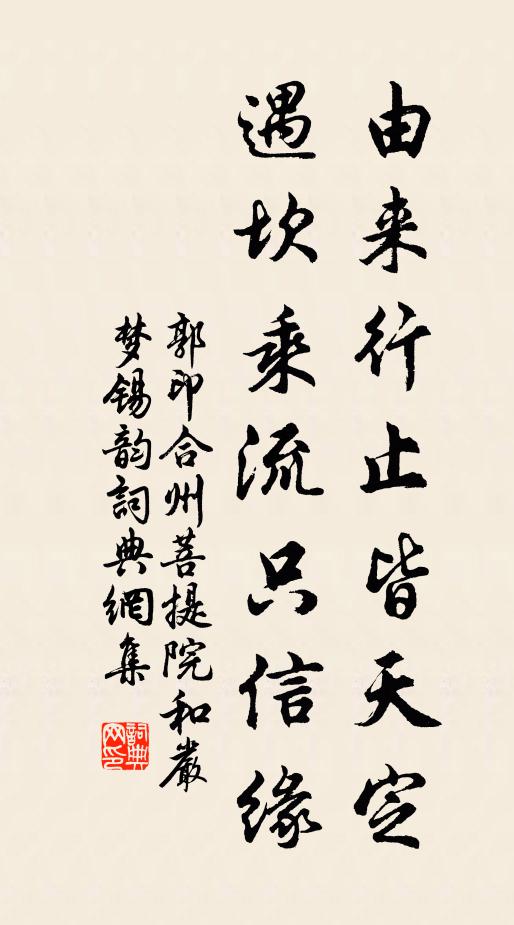 由来行止皆天定
遇坎乘流只信缘
郭印合州菩提院和嚴
梦锡韵詞典網集
詞典网印